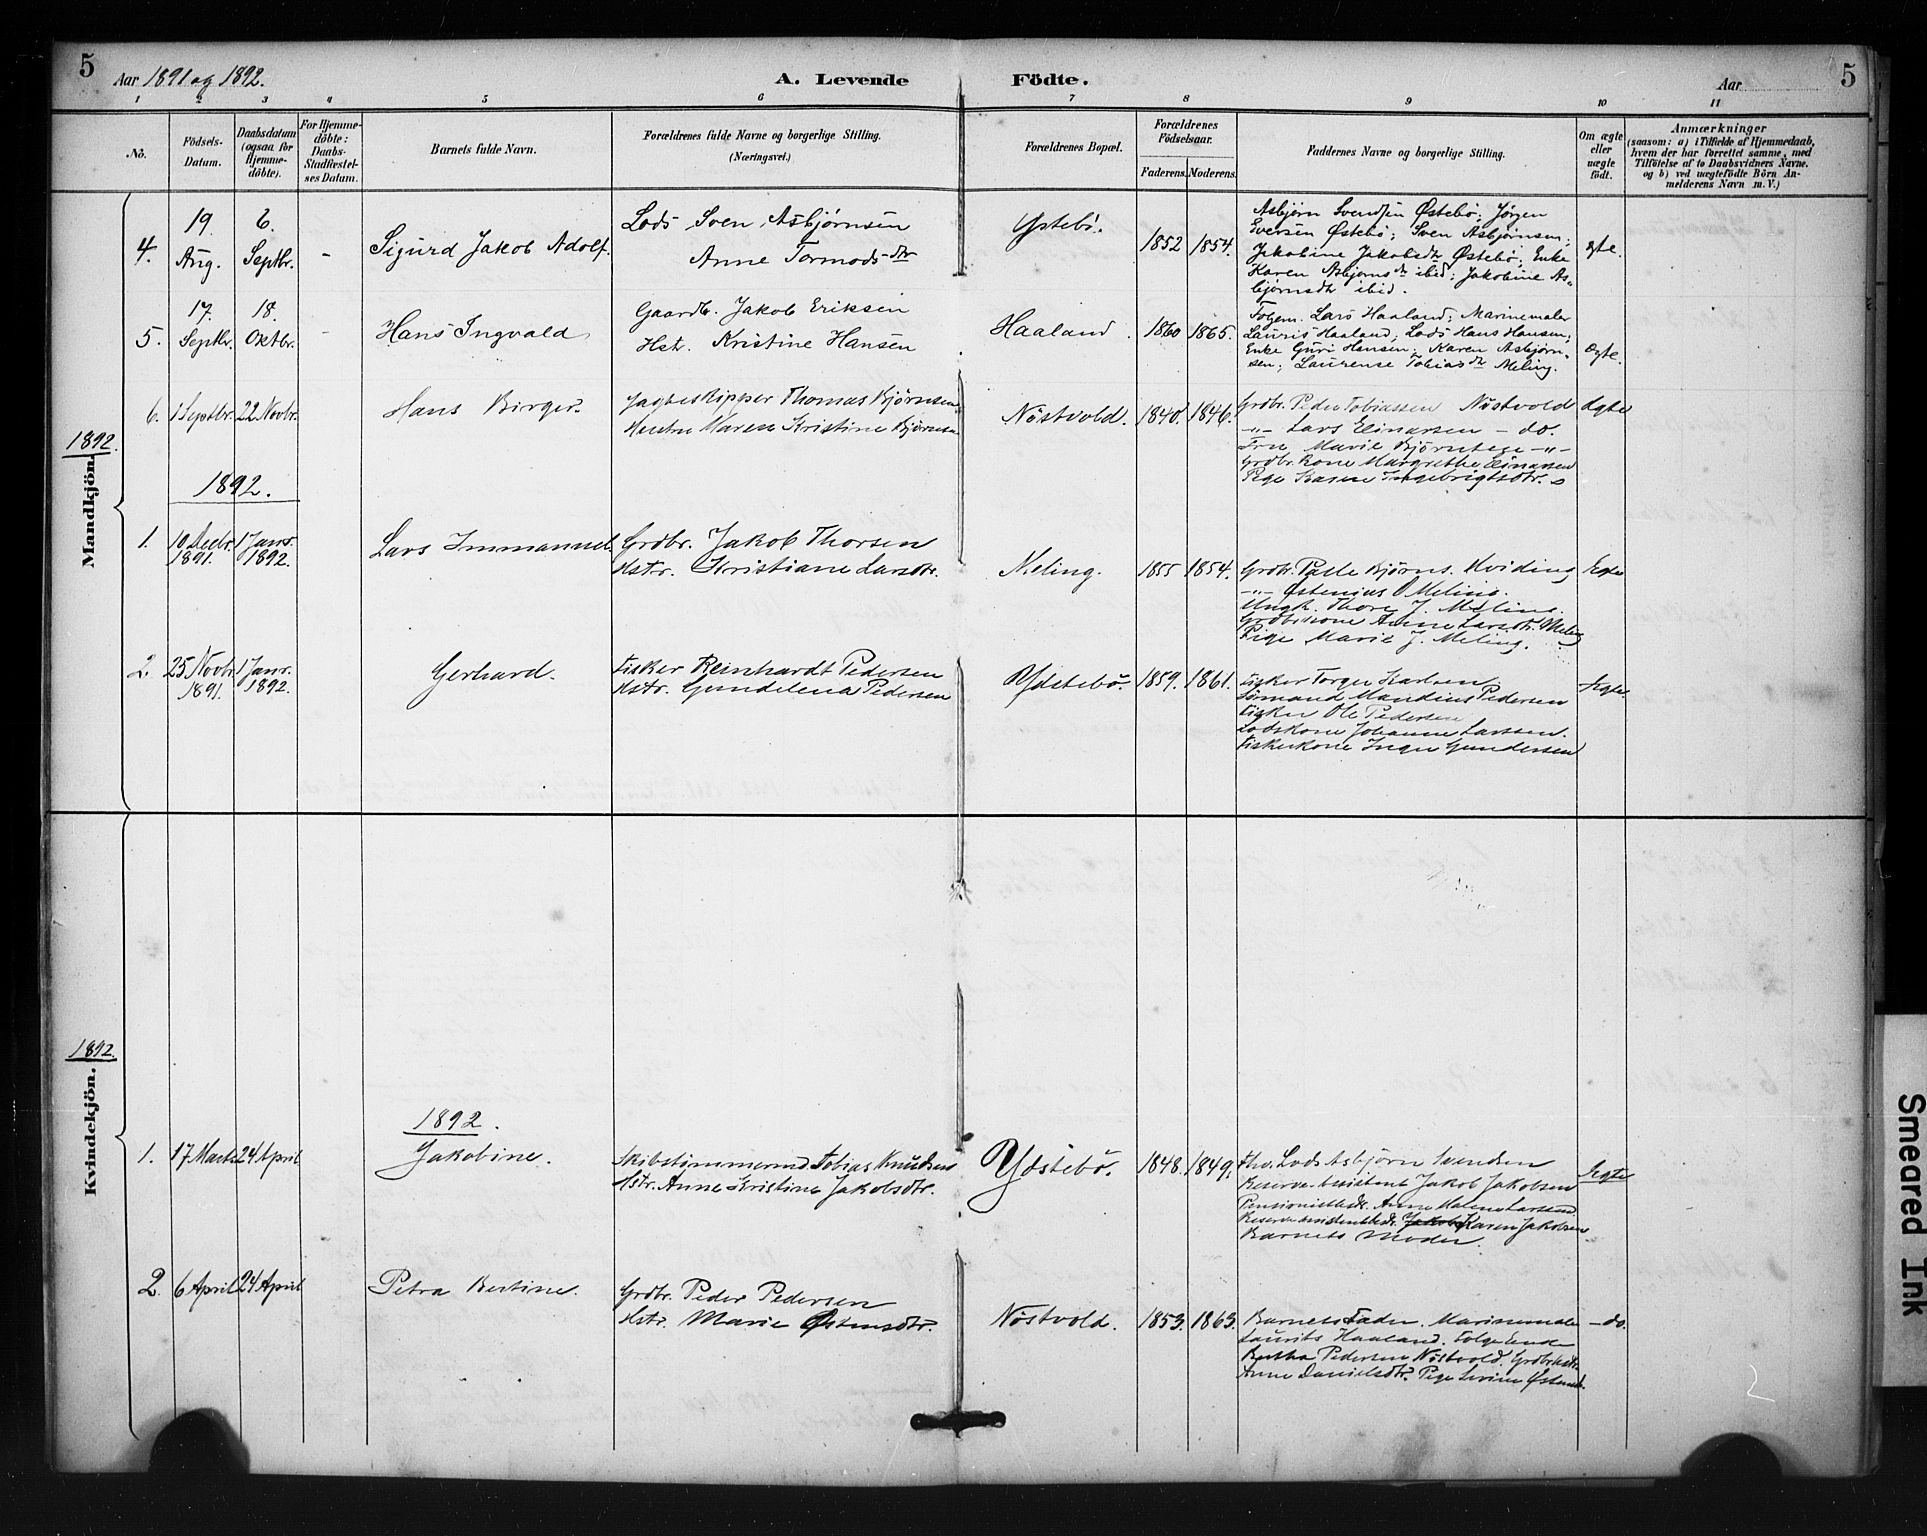 5
Aar 1891 og 1892.
A. Levende Födte.
Aar
5
1 2 3 4 5 6 7 8 9 10 11
No.
Födsels-Datum.
Daabsdatum (ogsaa for Hjemme-döbte).
For Hjemme-döbte: Daabs-Stadfæstel-ses Datum.
Barnets fulde Navn.
Forældrenes fulde Navne og borgerlige Stilling.
(Næringsvei.)
Forældrenes Bopæl.
Forældrenes Födselsaar.
Faderens. Moderens.
Faddernes Navne og borgerlige Stilling.
Om ægte eller uægte födt.
Anmærkninger
(saasom: a) i Tilfælde af Hjemmedaab,
hvem der har forrettet samme, med
Tilföielse af to Daabsvidners Navne.
og b) ved uægtefödte Börn An-
melderens Navn m. V.)
1892.
Mandkjön.
4.
19. Aug.
6. Septbr.
-
Sigurd Jakob Adolf.
Lods Sven Asbjørnsen
Anne Tormods dtr
Ystebö.
1852 1854.
Asbjørn Svendsen Østebø; Jörgen
Iversen Østebø; Sven Asbjørnsen;
Jakobine Jakobsdtr Østebø; Enke
Karen Asbjørnsdtr ibid; Jakobine As-
bjørnsdtr ibid.
ægte.
5.
17. Septbr.
18. Oktbr.
-
Hans Ingvald
Gaardb. Jakob Eriksen
Hstr. Kristine Hansen
Haaland.
1860 1865.
Folgem. Lars Haaland; Marinemaler
Laurits Haaland; Lods Hans Hansen;
Enke Guri Hansen, Karen Asbjørn-
sen; Laurense Tobiasdtr Meling.
ægte.
6.
1 Septbr.
22 Novbr.
Hans Birger.
Jagteskipper Thomas Bjørnsen
Hustru Maren Kristine Bjørnsen
Nöstvold.
1840. 1846.
Grdbr. Peder Tobiassen Nöstvold
-"- Lars Einarsen - do.
Fru Marie -"-
Grdbr. kone Margrethe Einarsen
Pige Karen Ingebrigtsdtr.
Ægte
1892.
1.
10 Decbr. 1891.
1 Janr. 1892.
Lars Immanuel.
Grdbr. Jakob Thorsen
Hstr. Kristiane Larsdtr.
Meling.
1855 1854.
Grdbr. Palle Bjørns. Kviding
-"- Østenius O Meling.
Ungk. Thore J. Meling.
Grdbr.kone Anne Larsdtr. Meling
Pige Marie J. Meling.
Ægte
2.
25 Novbr. 1891.
1 Janr. 1892.
Gerhard.
Fisker Reinhardt Pedersen
Hstr. Gundelena Pedersen
Ydstebö.
1859. 1861.
Fisker Torger Karlsen
Sömand Mandius Pedersen
Fisker Ole Pedersen
Lodskone Johanne Larssen.
Fiskerkone Inger Gundersen
Ægte.
1892.
Kvindekjön.
1892.
1.
17 Marts
24 April
Jakobine.
Skibstømmermd Tobias Knudsen
Hstr. Anne Kristine Jakobsdtr.
Ydstebö.
1848. 1849.
Lods Asbjörn Svendsen
Reserve-Assistent Jakob Jakobsen
Anne Malene Larsen
Karen Jakobsen
Barnets Moder.
Ægte
2.
6 April
24 April
Petra Bertine.
Grdbr. Peder Pedersen
Hstr. Marie Østensdtr.
Nöstvold.
1853. 1863.
Barnets Fader. Marinemaler
Laurits Haaland. Folge Enke
Bertha Pedersen Nöstvold.
Anne Danielsdtr. Pige
- do.
Smeared Ink